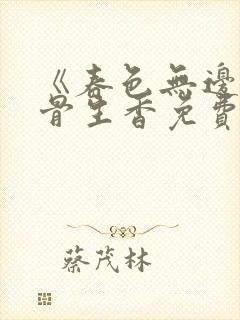 《春色無邊
骨生香免費
蔡茂林